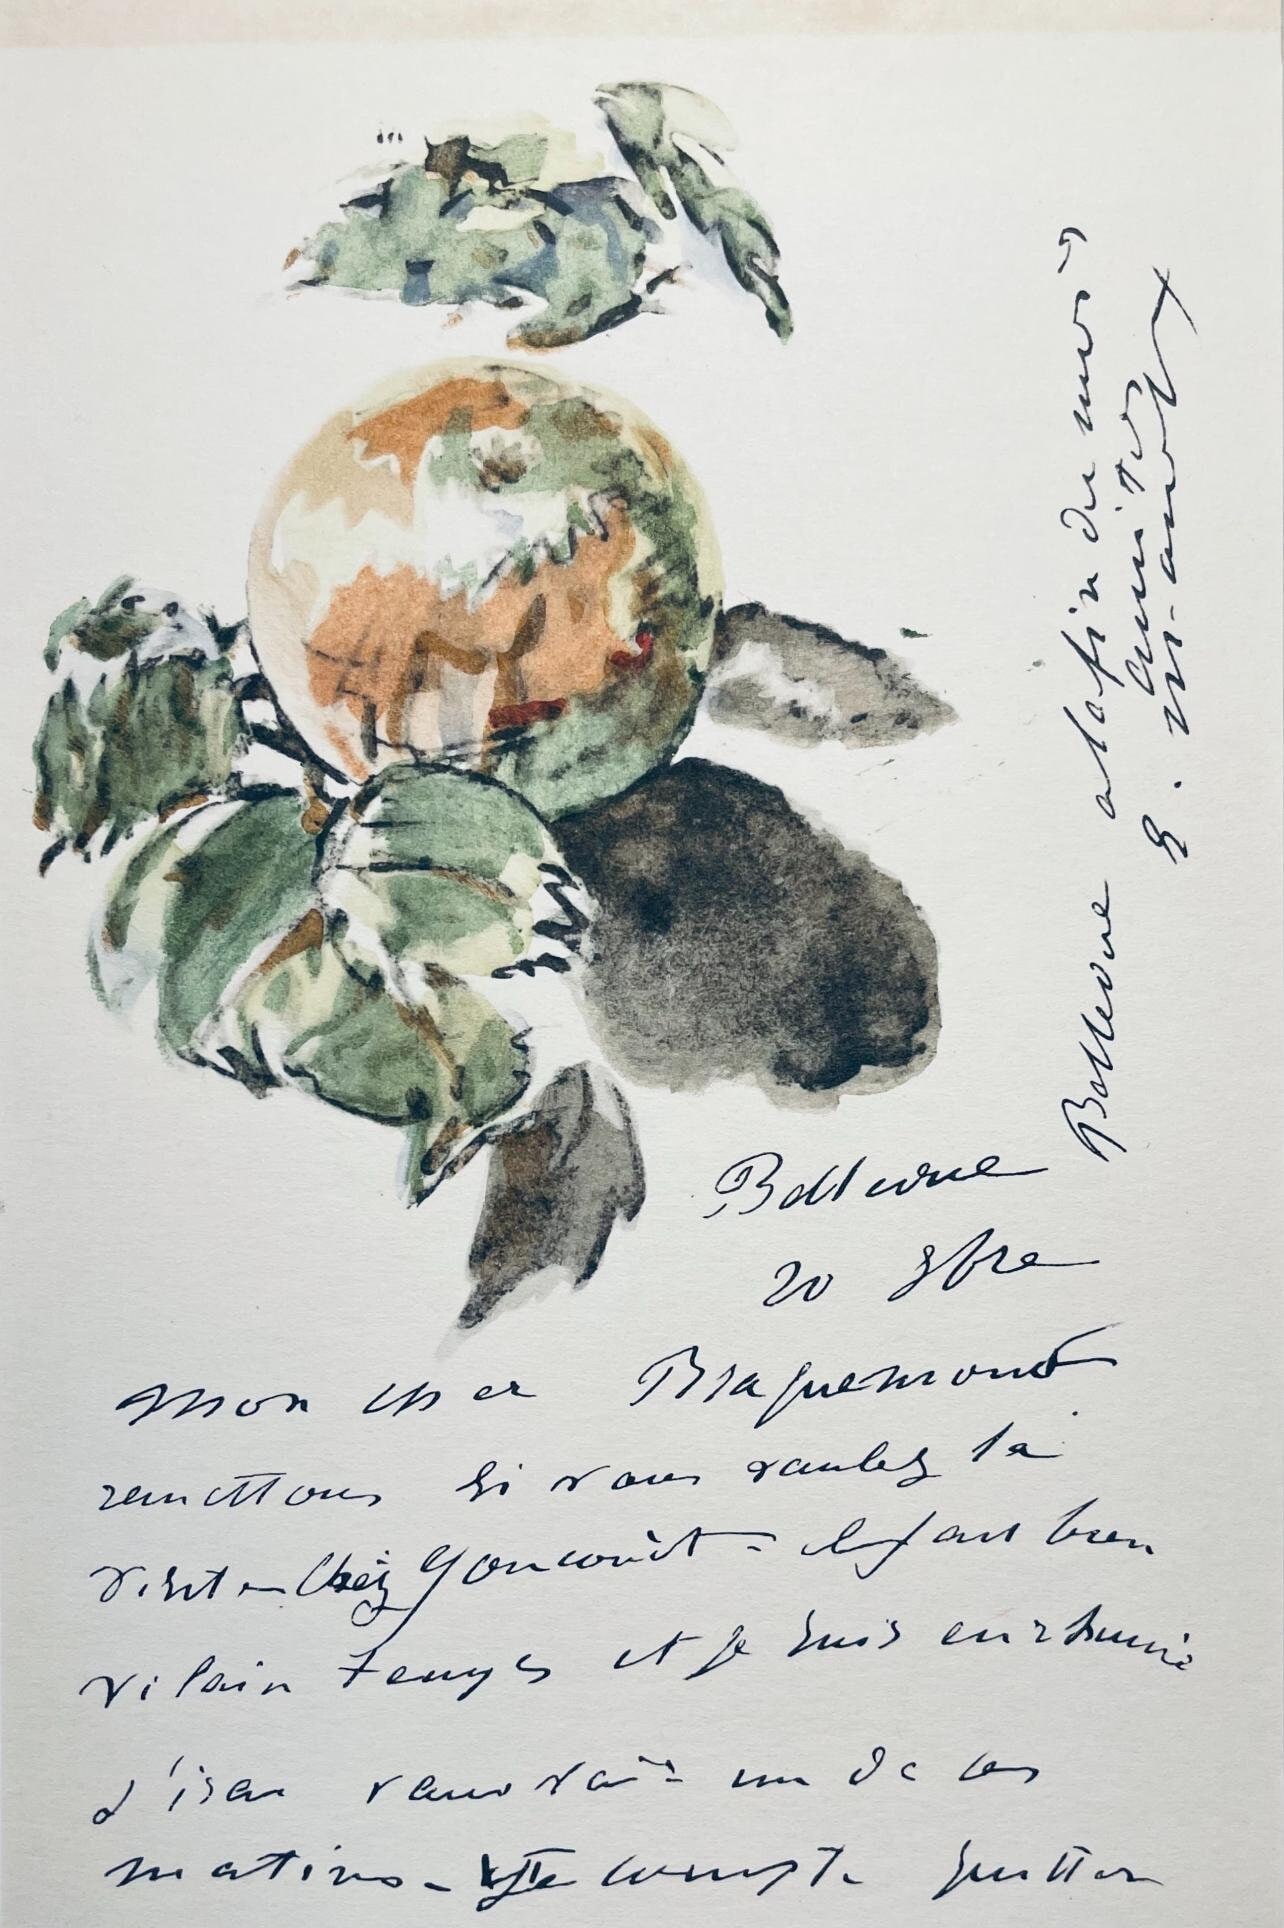 Bellevue
20 9bre
Mon cher Braquemond
remettons si vous voulez la
visite chez Goncourt - il fait bien
vilain temps et je suis enrhumé
j'irai vous voir un de ces
matins - Je compte quitter
Bellevue a la fin du mois
amitiés
E. Manet